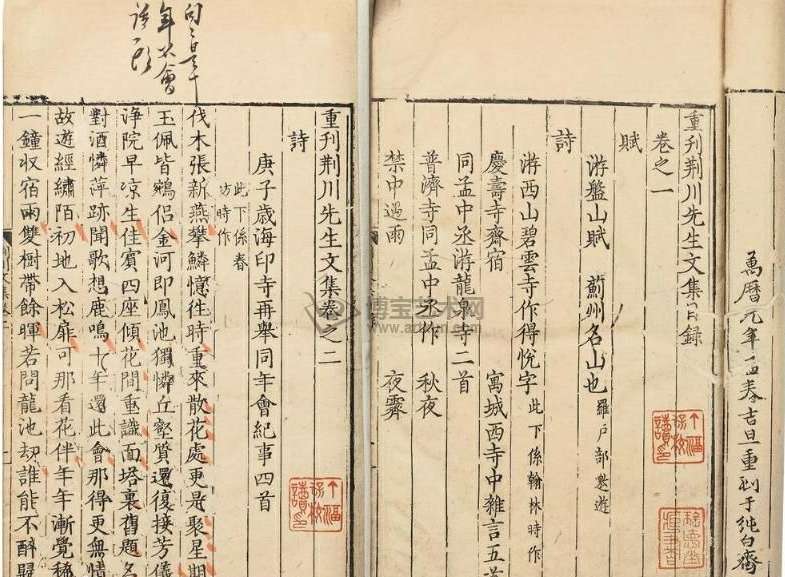 萬曆元年孟春吉旦重刻于純白齋
重刊荆川先生文集目録
卷之一
賦
游盤山賦 薊州名山也 羅戶部邀遊
詩
游西山碧雲寺作得悅字 此下係翰林時作
慶壽寺齋宿 寓城西寺中雜言五首
同孟中丞游龍泉寺二首
普濟寺同孟中丞作 秋夜
禁中過雨 夜霽
重刊荆川先生文集卷之二
詩
庚子歲海印寺再舉同年會紀事四首
此下係春
坊時作
伐木張新燕攀鱗憶徃時重來散花處更是聚星期
玉佩皆鵷侶金河即鳳池獨憐丘壑賞還復接芳儀
淨院早凉生佳賓四座傾花間重識面塔裏舊題名
對酒憐萍跡聞歌想鹿鳴十年還此會那得更無情
故遊經繡陌初地入松扉可那看花伴年年漸覺稀
一鐘収宿雨雙樹帶餘暉若問龍池劫誰能不醉歸
博宝艺术网